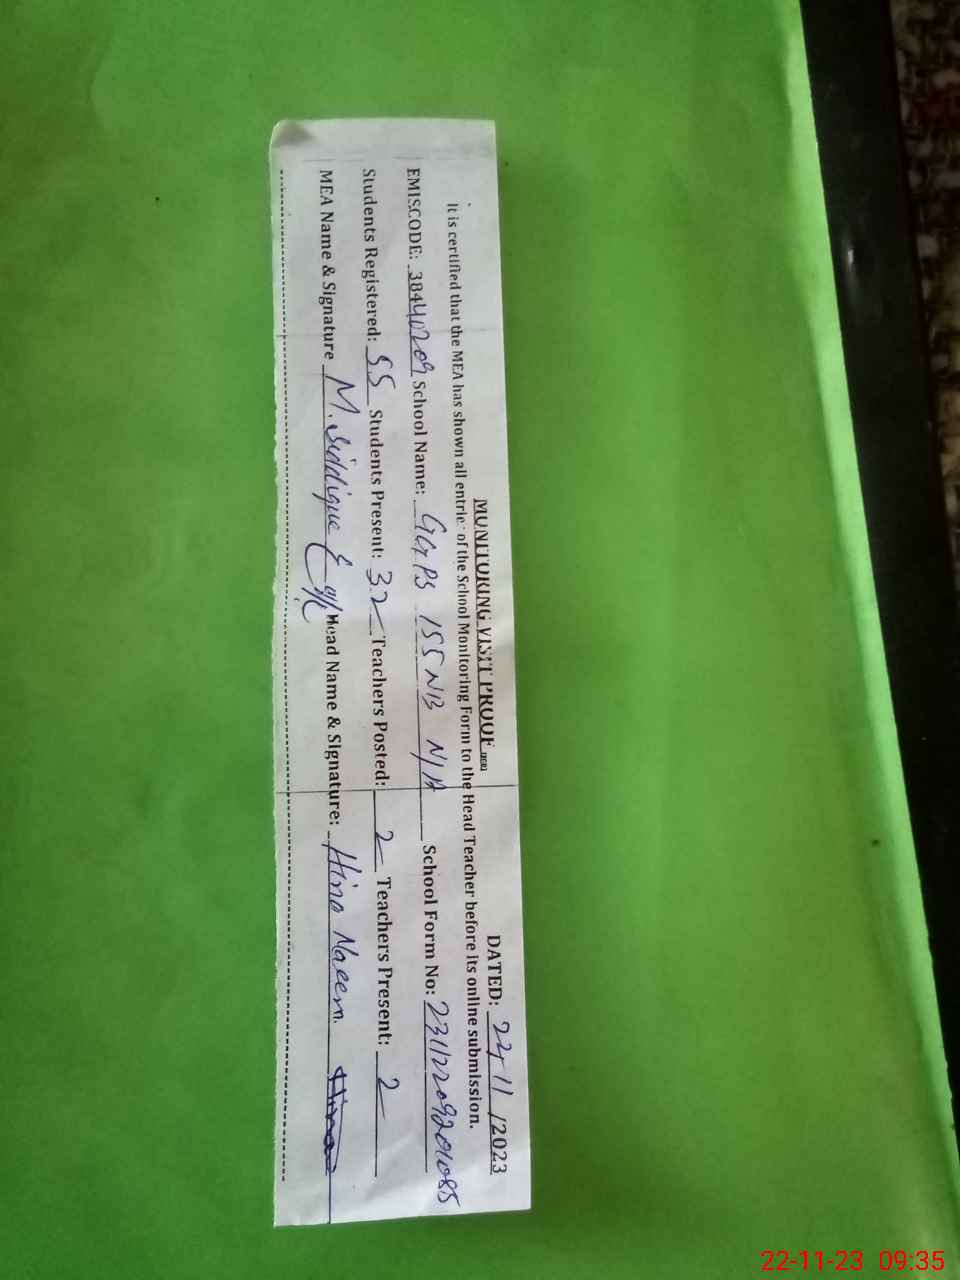 MONITORING VISIT PROOF
DATED: 22/11/2023
It is certified that the MEA has shown all entries of the School Monitoring Form to the Head Teacher before its online submission.
EMISCODE: 38440209 School Name: GGPS 155 NB N/A School Form No: 23112209201085
Students Registered: 55 Students Present: 32 Teachers Posted: 2 Teachers Present: 2
MEA Name & Signature M. Siddique Head Name & Signature: Hina Naeem. Hina
22-11-23 09:35